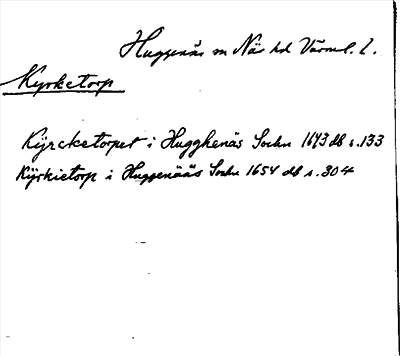 Huggenäs sn Näs hd Värml. l.
Kyrketorp
Kyrcketorpet i Hugghenäs Sochn 1643 db s. 133
Kÿrkietorp i Huggenääs Sochn 1654 db s. 304